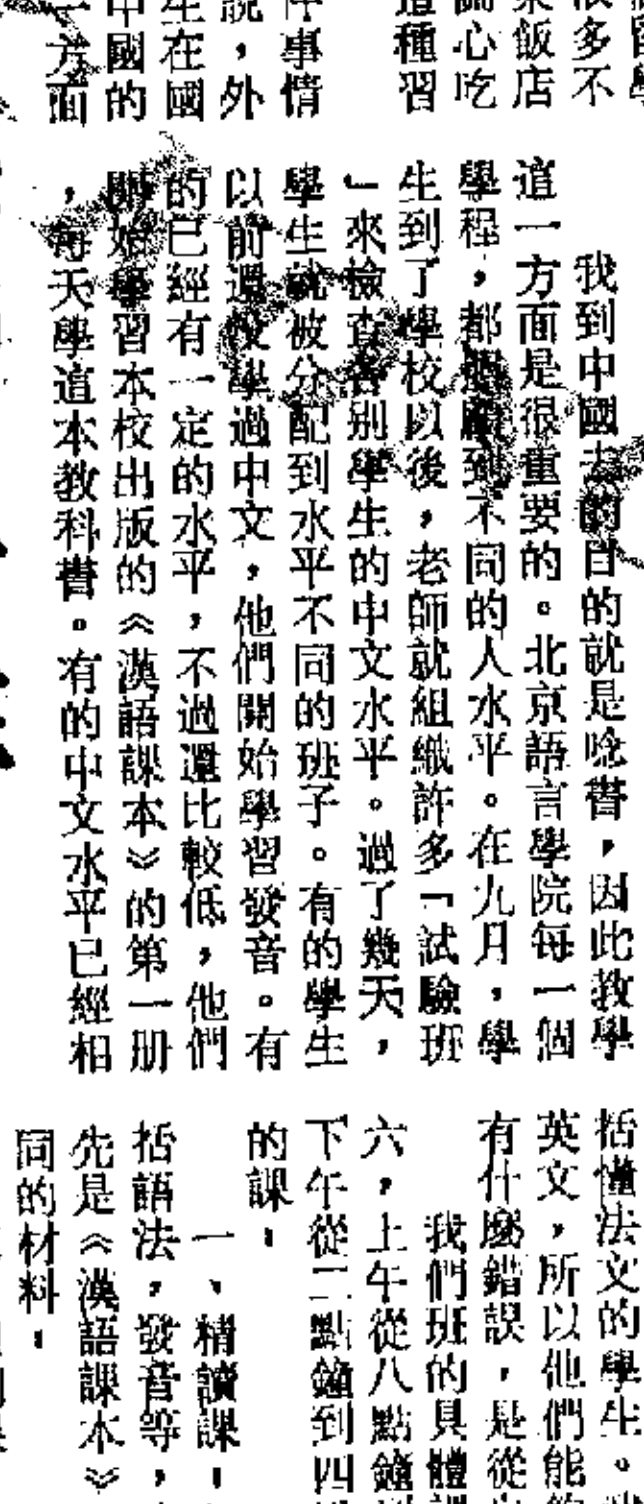 很多不
飯店
心吃
這種習
件事情
說，外
生在國
中國的
一方面
我到中國去的目的就是唸書，因此教學
這一方面是很重要的。北京語言學院每一個
學程，都照顧到不同的人水平。在九月，學
生到了學校以後，老師就組織許多「試驗班
」來檢查各別學生的中文水平。過了幾天，
學生就被分配到水平不同的班子。有的學生
以前還沒學過中文，他們開始學習發音。有
的已經有一定的水平，不過還比較低，他們
開始學習本校出版的《漢語課本》的第一册
，每天學這本教科書。有的中文水平已經相
括懂法文的學生。
英文，所以他們能
有什麼錯誤，是從
我們班的具體
六，上午從八點鐘
下午從二點鐘到四
的課：
一、精讀課：
括語法，發音等，
先是《漢語課本》
同的材料：